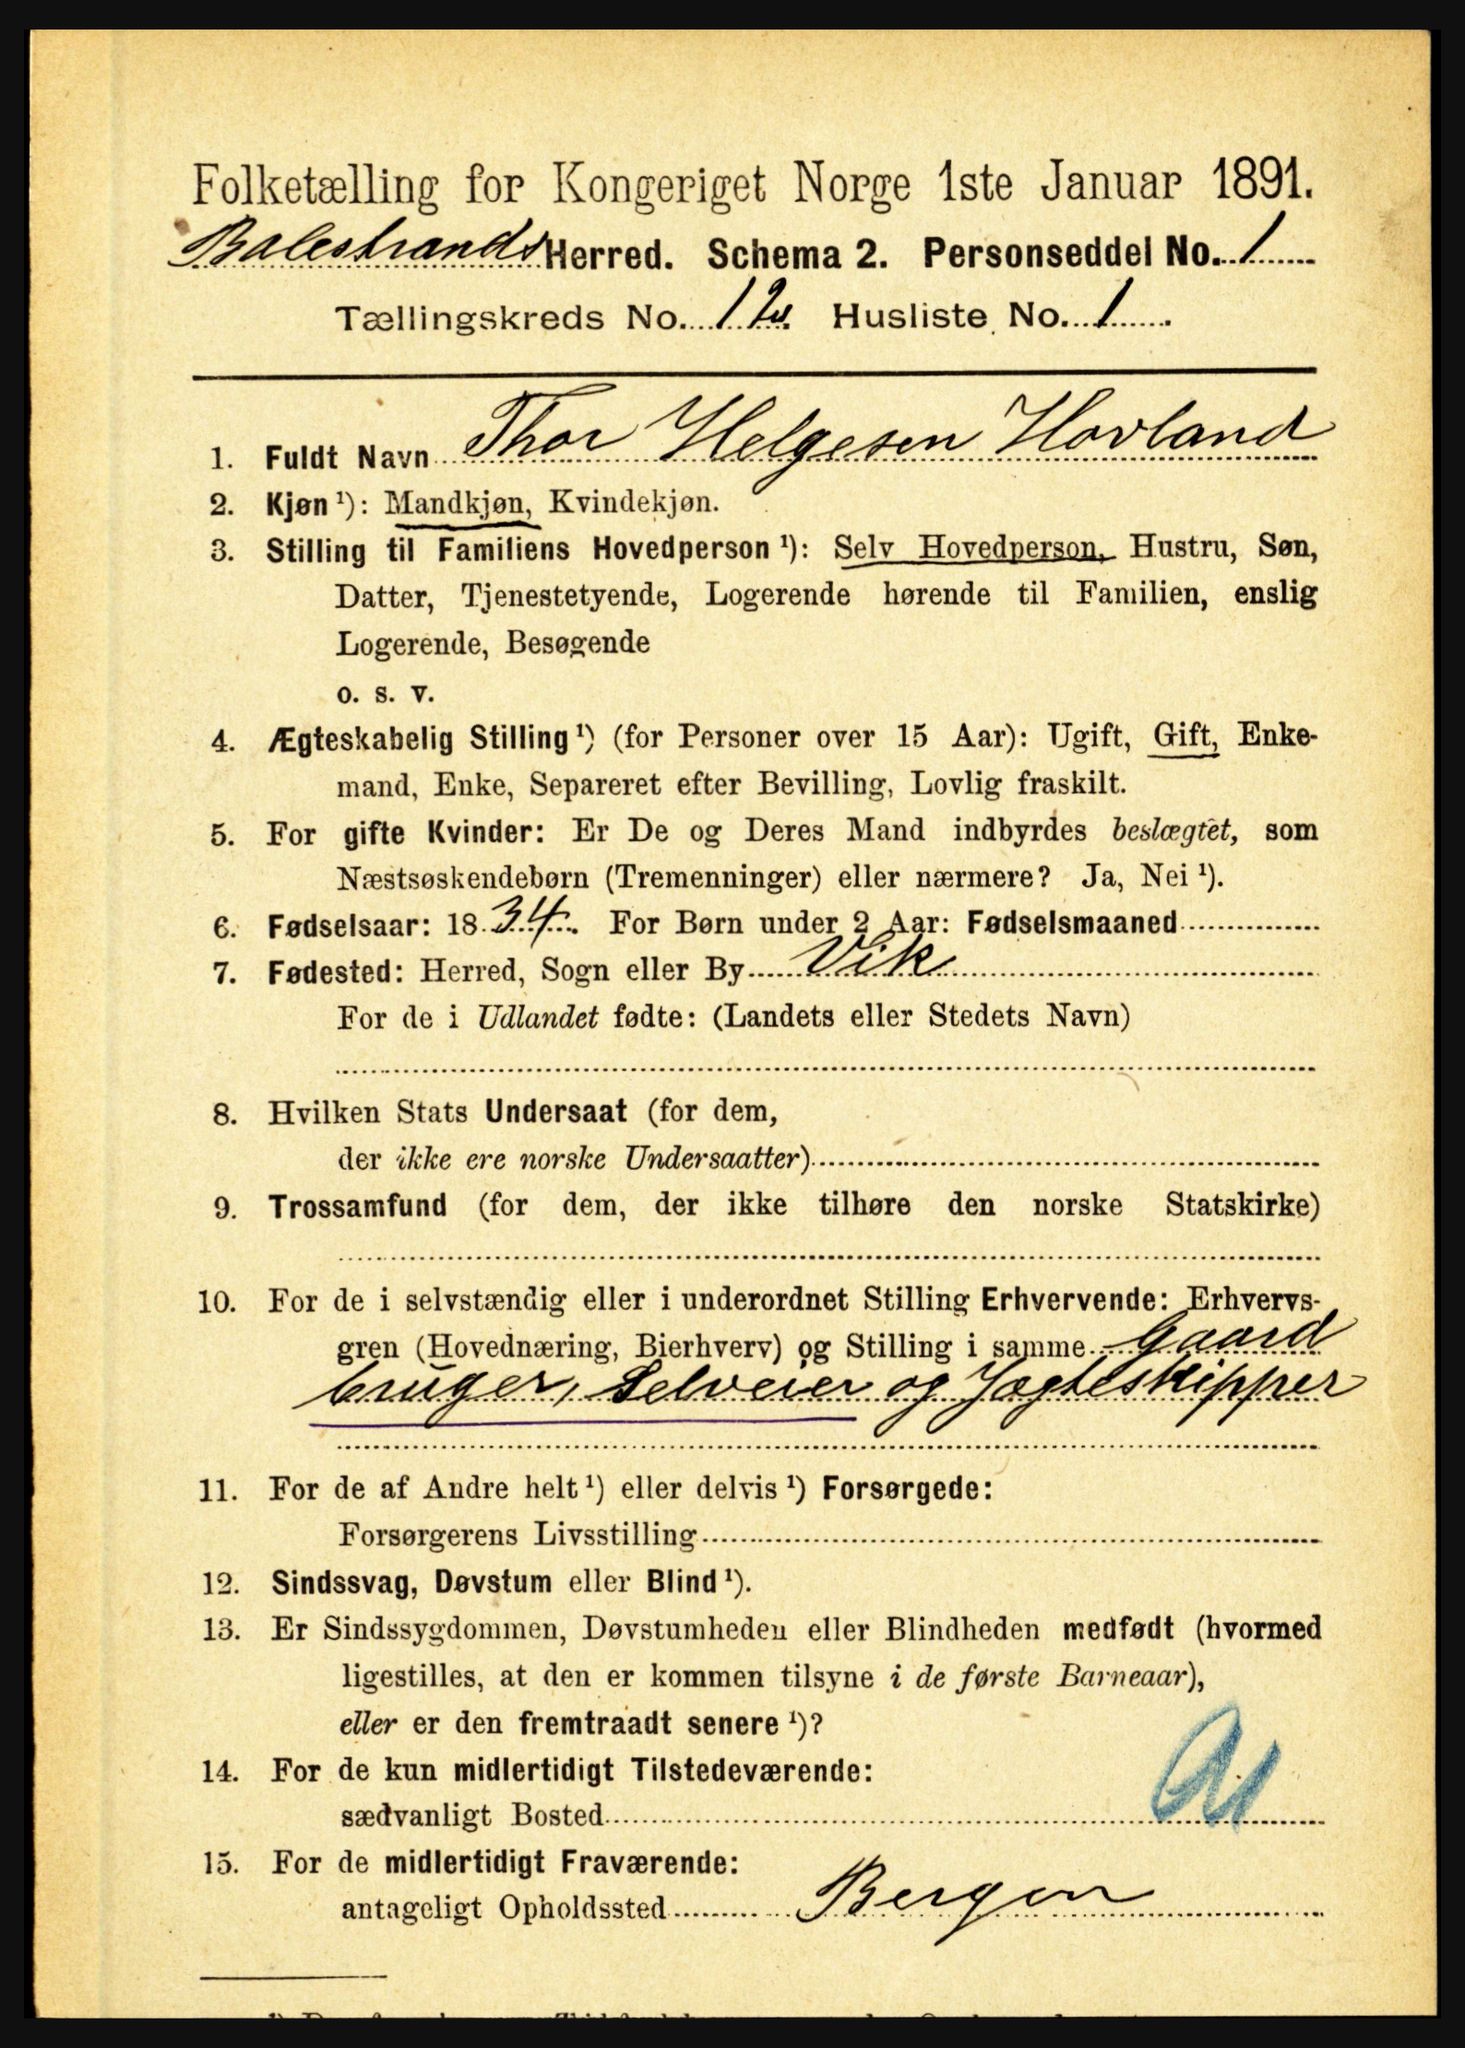 Folketælling for Kongeriget Norge 1ste Januar 1891.
Balestrands Herred. Schema 2. Personseddel No. 1
Tællingskreds No. 12. Husliste No. 1
1. Fuldt Navn Thor Helgesen Hovland
2. Kjøn ¹): Mandkjøn, Kvindekjøn.
3. Stilling til Familiens Hovedperson ¹): Selv Hovedperson, Hustru, Søn,
Datter, Tjenestetyende, Logerende hørende til Familien, enslig
Logerende, Besøgende
o. s. v.
4. Ægteskabelig Stilling ¹) (for Personer over 15 Aar): Ugift, Gift, Enke-
mand, Enke, Separeret efter Bevilling, Lovlig fraskilt.
5. For gifte Kvinder: Er De og Deres Mand indbyrdes beslægtet, som
Næstsøskendebørn (Tremenninger) eller nærmere? Ja, Nei ¹).
6. Fødselsaar: 1834. For Børn under 2 Aar: Fødselsmaaned
7. Fødested: Herred, Sogn eller By Vik
For de i Udlandet fødte: (Landets eller Stedets Navn)
8. Hvilken Stats Undersaat (for dem,
der ikke ere norske Undersaatter)
9. Trossamfund (for dem, der ikke tilhøre den norske Statskirke)
10. For de i selvstændig eller i underordnet Stilling Erhvervende: Erhvervs-
gren (Hovednæring, Bierhverv) og Stilling i samme Gaard
bruger, Selveier og Jægteskipper
11. For de af Andre helt ¹) eller delvis ¹) Forsørgede:
Forsørgerens Livsstilling
12. Sindssvag, Døvstum eller Blind ¹).
13. Er Sindssygdommen, Døvstumheden eller Blindheden medfødt (hvormed
ligestilles, at den er kommen tilsyne i de første Barneaar),
eller er den fremtraadt senere ¹)?
14. For de kun midlertidigt Tilstedeværende:
sædvanligt Bosted
15. For de midlertidigt Fraværende:
antageligt Opholdssted Bergen